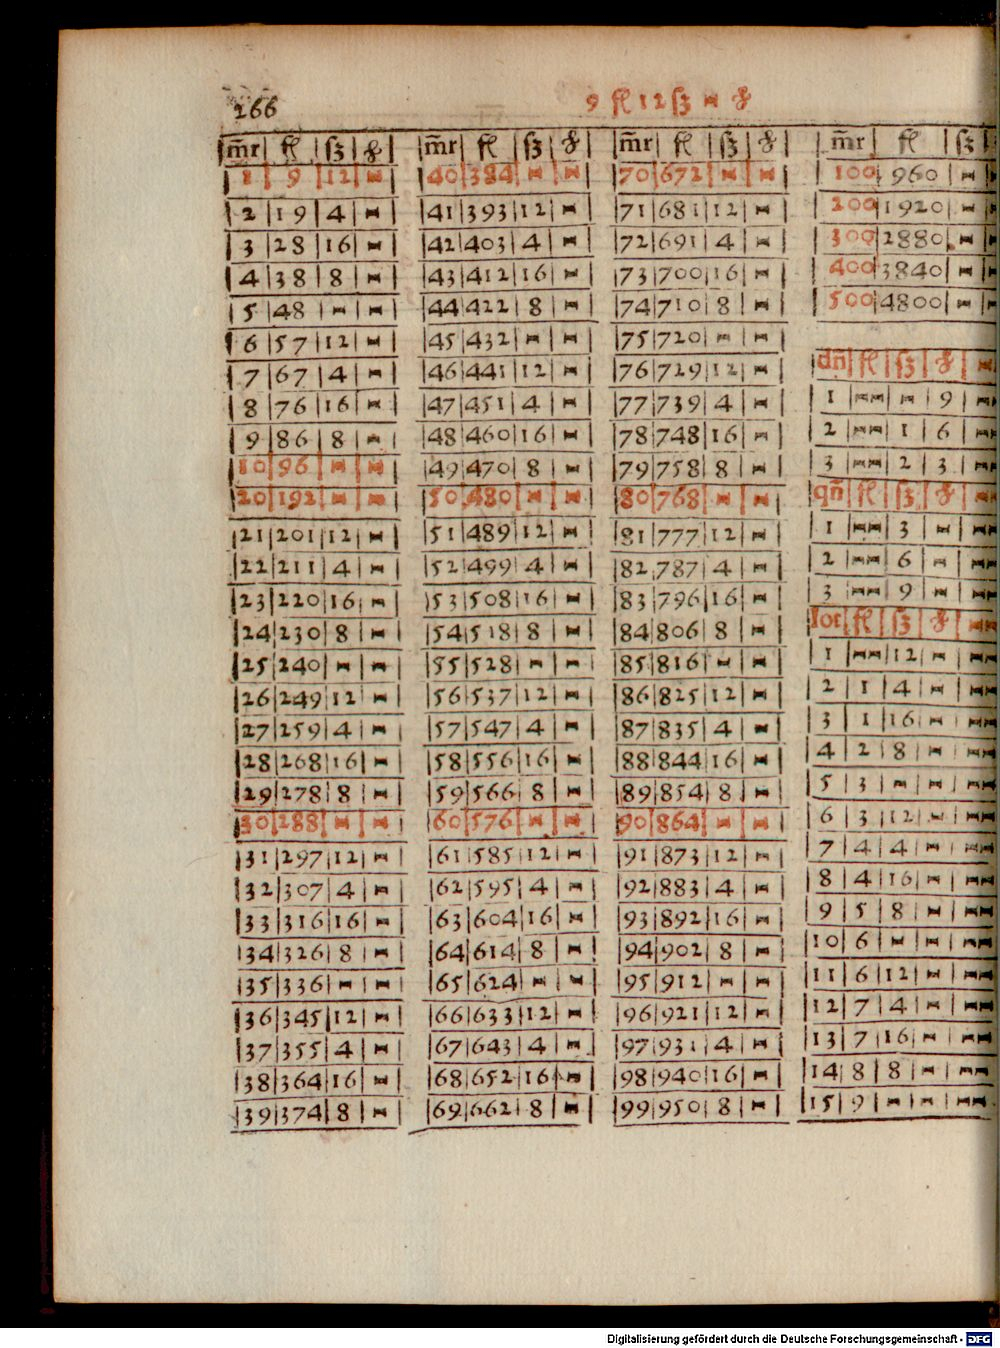 266
9 fl 12 ſz - ₰
m̄r fl ſz ₰
1 9 12 -
2 19 4 -
3 28 16 -
4 38 8 -
5 48 - -
6 57 12 -
7 67 4 -
8 76 16 -
9 86 8 -
10 96 - -
20 192 - -
21 201 12 -
22 211 4 -
23 220 16 -
24 230 8 -
25 240 - -
26 249 12 -
27 259 4 -
28 268 16 -
29 278 8 -
30 288 - -
31 297 12 -
32 307 4 -
33 316 16 -
34 326 8 -
35 336 - -
36 345 12 -
37 355 4 -
38 364 16 -
39 374 8 -
m̄r fl ſz ₰
40 384 - -
41 393 12 -
42 403 4 -
43 412 16 -
44 422 8 -
45 432 - -
46 441 12 -
47 451 4 -
48 460 16 -
49 470 8 -
50 480 - -
51 489 12 -
52 499 4 -
53 508 16 -
54 518 8 -
55 528 - -
56 537 12 -
57 547 4 -
58 556 16 -
59 566 8 -
60 576 - -
61 585 12 -
62 595 4 -
63 604 16 -
64 614 8 -
65 624 - -
66 633 12 -
67 643 4 -
68 652 16 -
69 662 8 -
m̄r fl ſz ₰
70 672 - -
71 681 12 -
72 691 4 -
73 700 16 -
74 710 8 -
75 720 - -
76 729 12 -
77 739 4 -
78 748 16 -
79 758 8 -
80 768 - -
81 777 12 -
82 787 4 -
83 796 16 -
84 806 8 -
85 816 - -
86 825 12 -
87 835 4 -
88 844 16 -
89 854 8 -
90 864 - -
91 873 12 -
92 883 4 -
93 892 16 -
94 902 8 -
95 912 - -
96 921 12 -
97 931 4 -
98 940 16 -
99 950 8 -
m̄r fl ſz
100 960 -
200 1920 -
300 2880 -
400 3840 -
500 4800 -
dn̄ fl ſz ₰ -
1 -- - 9 --
2 -- 1 6 --
3 -- 2 3 --
qn̄ fl ſz ₰ --
1 -- 3 - --
2 -- 6 - --
3 -- 9 - --
lot fl ſz ₰ --
1 -- 12 - --
2 1 4 - --
3 1 16 - --
4 2 8 - --
5 3 - - --
6 3 12 - --
7 4 4 - --
8 4 16 - --
9 5 8 - --
10 6 - - --
11 6 12 - --
12 7 4 - --
13 7 16 - --
14 8 8 - --
15 9 - - --
Digitalisierung gefördert durch die Deutsche Forschungsgemeinschaft - DFG